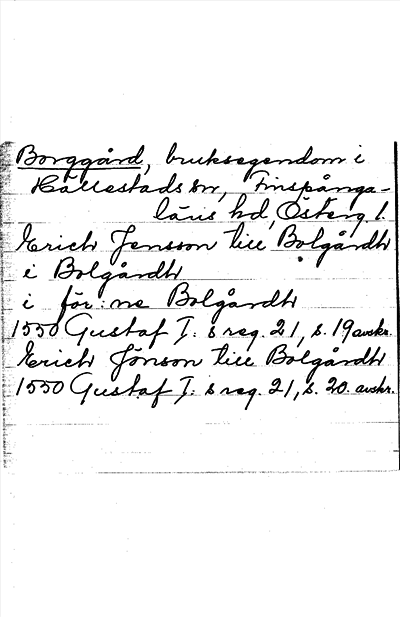 Borggård, bruksegendom i
Hällestads sn, Finspånga-
läns hd, Österg. l.
Erich Jensson till Bolgårdh
i Bolgårdh
i för:ne Bolgårdh
1550 Gustaf I:s reg. 21, s. 19 avskr.
Erich Jönson till Bolgårdh
1550 Gustaf I:s reg. 21, s. 20. avskr.